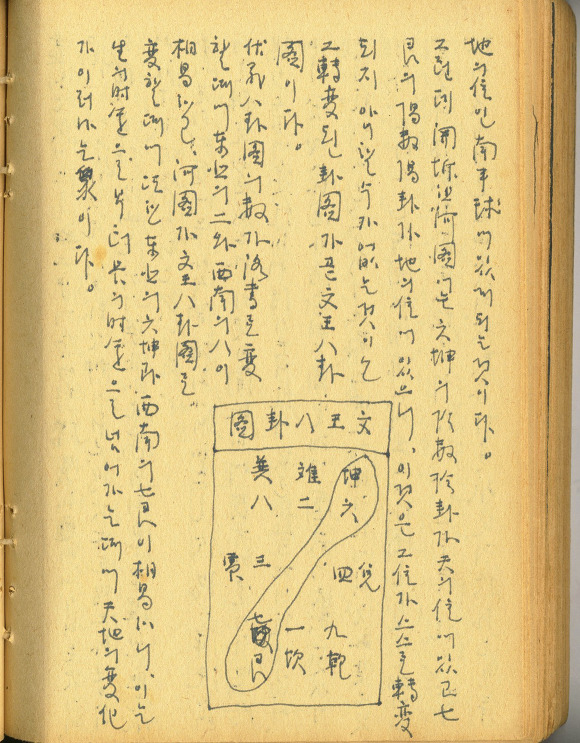 地의位인 南半球에 있게 되는 것이다。
그런데 開坼된 河圖에는 六坤의 陰數陰卦가 天의位에 있고 七
艮의 陽數陽卦가 地의位에 있으니, 이것은 그 位가 스스로 轉變
되지 아니할 수가 없는 것이니
그 轉變된 卦圖가 곧 文王八卦
圖이다。
伏羲八卦圖의 數가 洛書로 變
할 때에 東北의 二와 西南의 八이
相易하고, 河圖가 文王八卦圖로
變할 때에 또한 東北의 六坤과 西南의 七艮이 相易하니, 이는
生의 時運으로부터 長의 時運으로 넘어가는 때에 天地의 變化
가 이러나는 象이다。
圖卦八王文
坤六
離二
巽八
兌四
三震
九乾
一坎
七艮